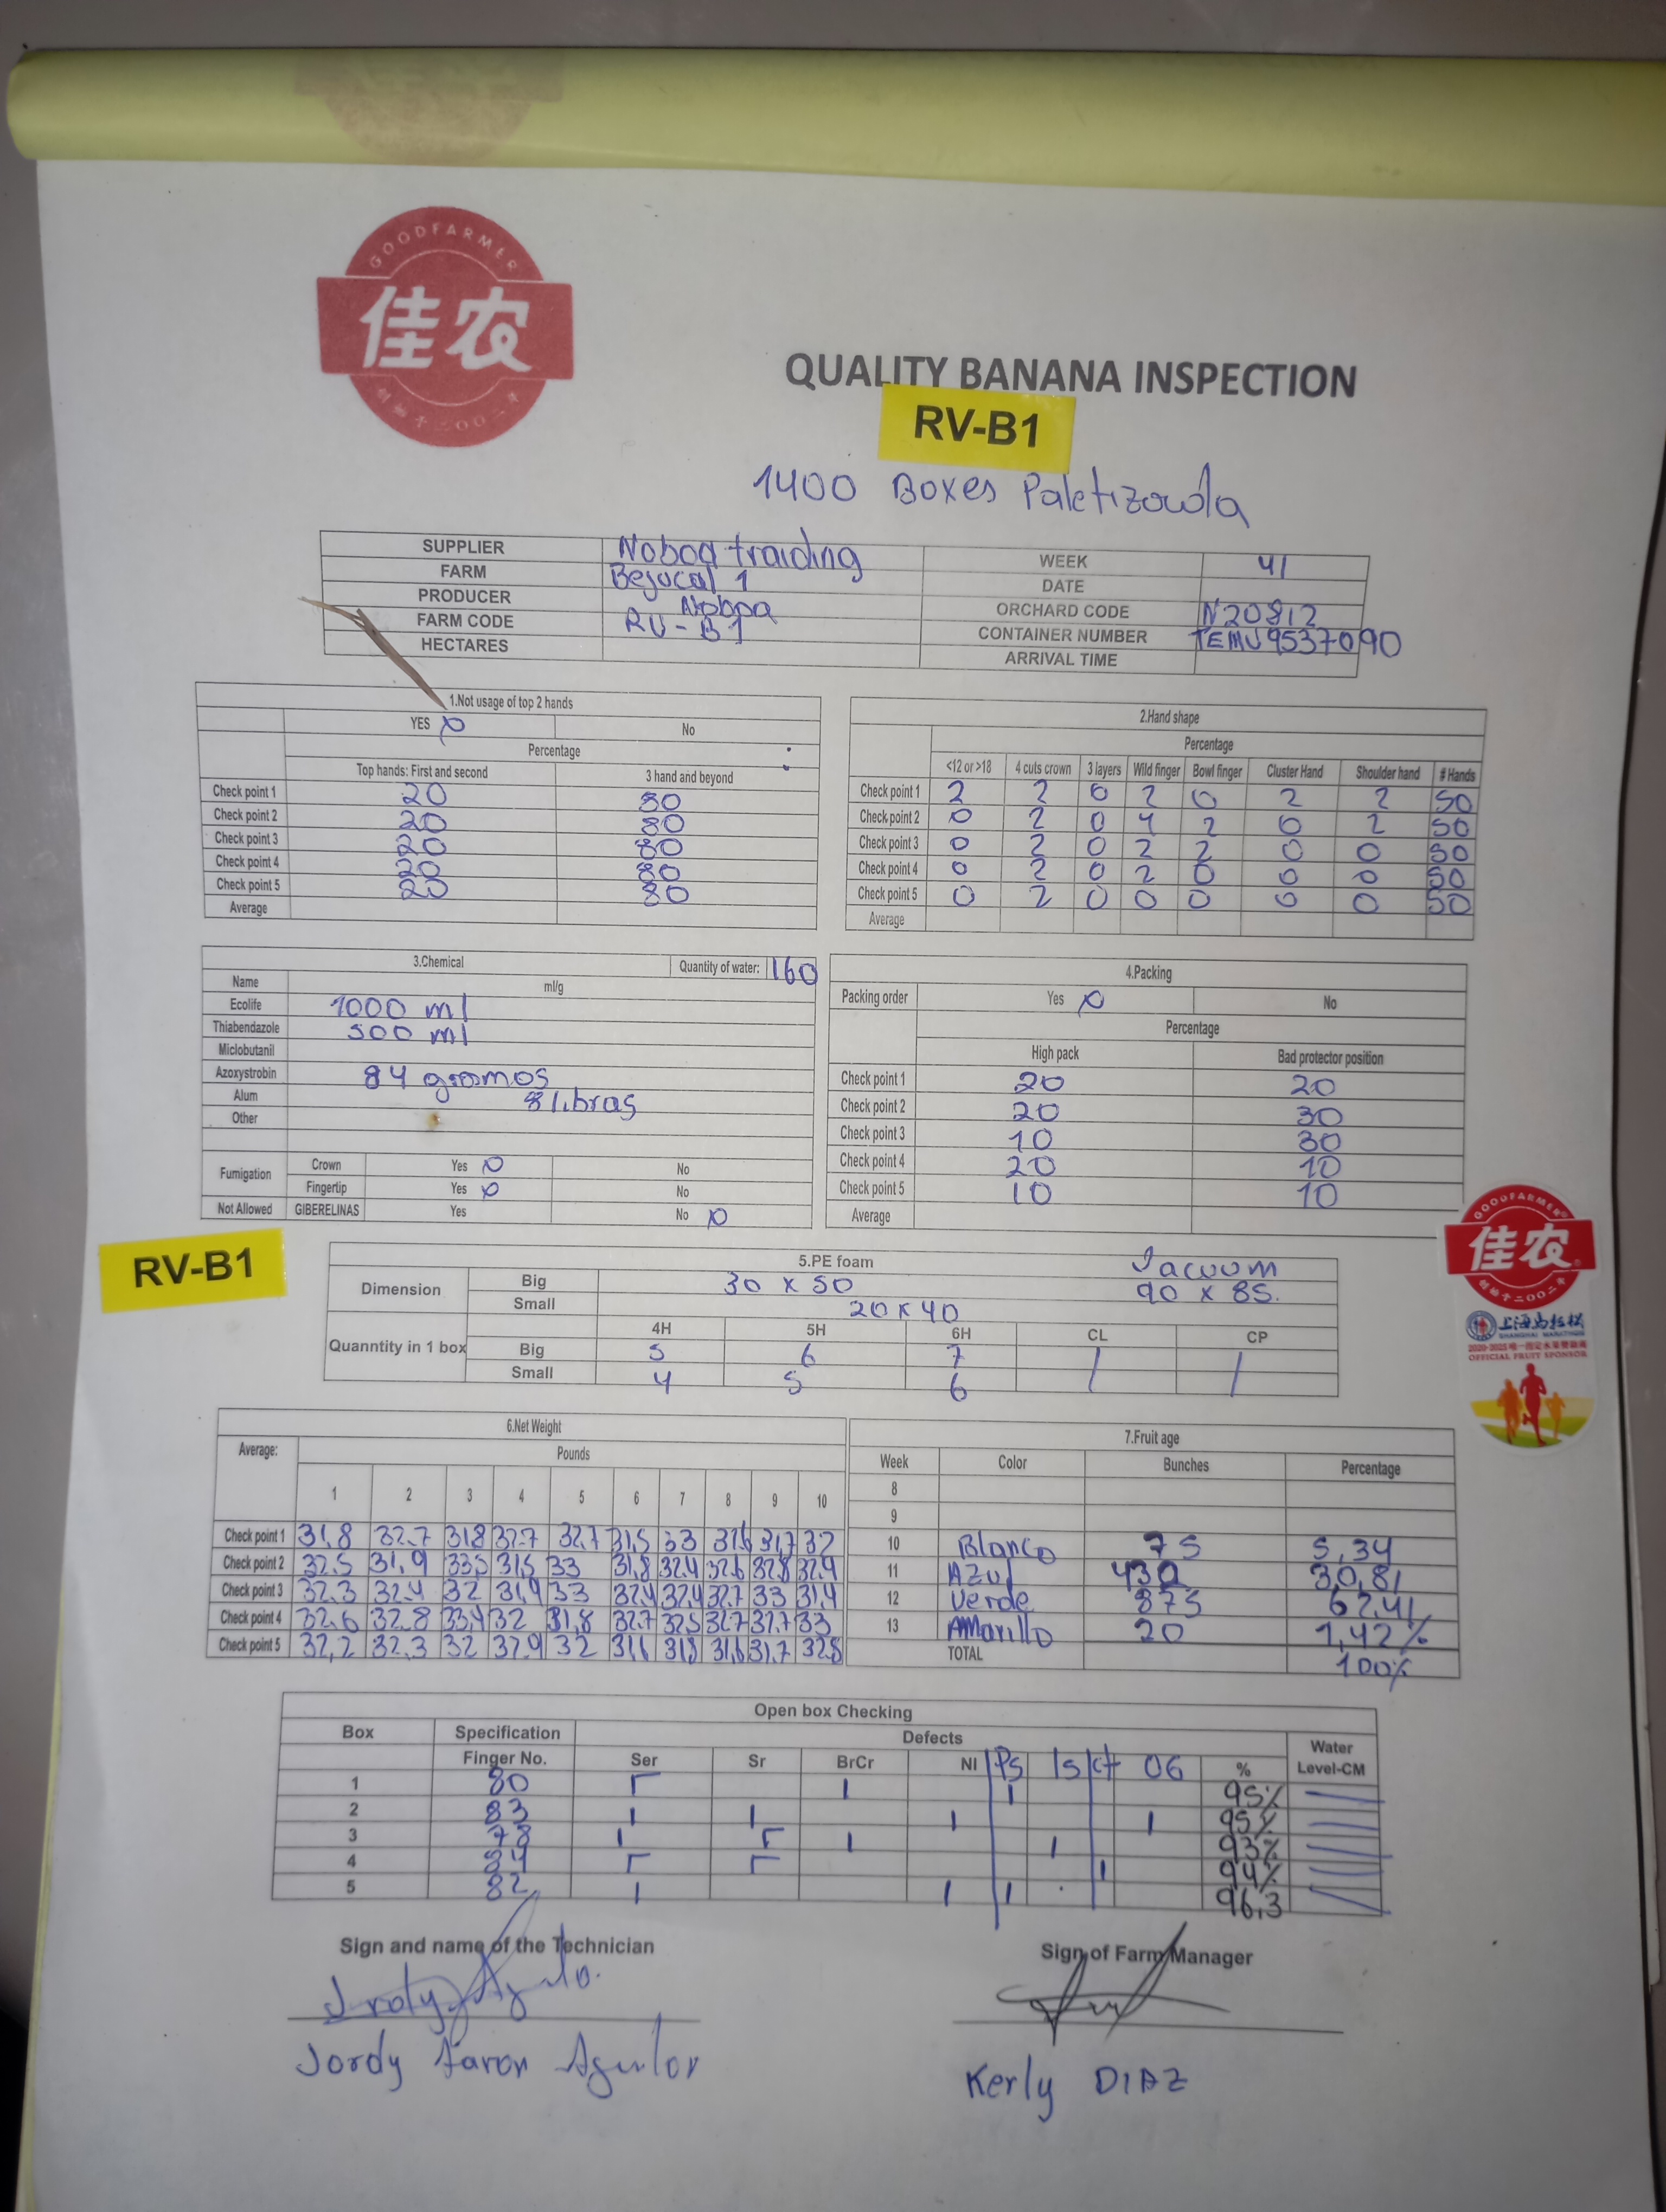 GOODFARMER
佳农
创始于二〇〇二年
QUALITY BANANA INSPECTION
RV-B1
1400 Boxes Paletizada
SUPPLIER Noboa traiding WEEK 41
FARM Bejucal 1 DATE
PRODUCER Noboa ORCHARD CODE N20812
FARM CODE RV-B1 CONTAINER NUMBER TEMU9537090
HECTARES ARRIVAL TIME
1.Not usage of top 2 hands
YES No
Percentage
Top hands: First and second 3 hand and beyond
Check point 1 20 80
Check point 2 20 80
Check point 3 20 80
Check point 4 20 80
Check point 5 20 80
Average
2.Hand shape
Percentage
<12 or >18 4 cuts crown 3 layers Wild finger Bowl finger Cluster Hand Shoulder hand # Hands
Check point 1 2 2 0 2 0 2 2 50
Check point 2 0 2 0 4 2 0 2 50
Check point 3 0 2 0 2 2 0 0 50
Check point 4 0 2 0 2 0 0 0 50
Check point 5 0 2 0 0 0 0 0 50
Average
3.Chemical Quantity of water: 160
Name ml/g
Ecolife 1000 ml
Thiabendazole 500 ml
Miclobutanil
Azoxystrobin 84 gramos
Alum 8 libras
Other
Fumigation Crown Yes No
Fingertip Yes No
Not Allowed GIBERELINAS Yes No
4.Packing
Packing order Yes No
Percentage
High pack Bad protector position
Check point 1 20 20
Check point 2 20 30
Check point 3 10 30
Check point 4 20 10
Check point 5 10 10
Average
GOODFARMER
佳农
创始于二〇〇二年
上海马拉松
SHANGHAI MARATHON
OFFICIAL FRUIT SPONSOR
RV-B1
5.PE foam Vacuum
Dimension Big 30 x 50 90 x 85.
Small 20 x 40
4H 5H 6H CL CP
Quanntity in 1 box Big 5 6 7 /
Small 4 5 6 /
6.Net Weight
Average: Pounds
1 2 3 4 5 6 7 8 9 10
Check point 1 31,8 32.7 31.8 32.7 32,7 31,5 33 31,6 31,7 32
Check point 2 32.5 31,9 33,5 31,5 33 31,8 32.4 32.6 32.8 32.4
Check point 3 32.3 32.4 32 31,4 33 32.4 32.4 32.7 33 31.4
Check point 4 32.6 32.8 33,4 32 31,8 32.7 32.5 32.7 32.7 33
Check point 5 32,2 32.3 32 32.9 32 31,6 31,8 31,6 31.7 32.8
7.Fruit age
Week Color Bunches Percentage
8
9
10 Blanco 75 5,34
11 Azul 430 30,81
12 Verde 875 62.41
13 Amarillo 20 1,42%
TOTAL 100%
Open box Checking
Box Specification Defects Water
Finger No. Ser Sr BrCr NI Ps Is Ct OG % Level-CM
1 80 95%
2 83 95%
3 78 93%
4 84 94%
5 82 96,3
Sign and name of the Technician Sign of Farm Manager
Jordy Aguilar
Jordy Aaron Aguilar Kerly DIAZ